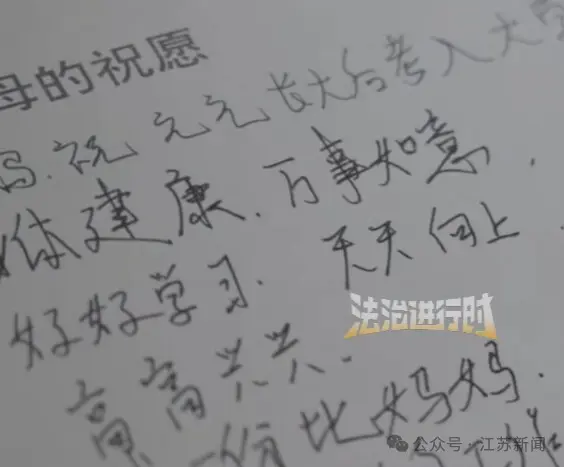 母的祝愿
祝元元长大后考入大学
体建康.万事如意.
好好学习.天天向上.
法治进行时
高高兴兴.
份比妈妈.
公众号·江苏新闻